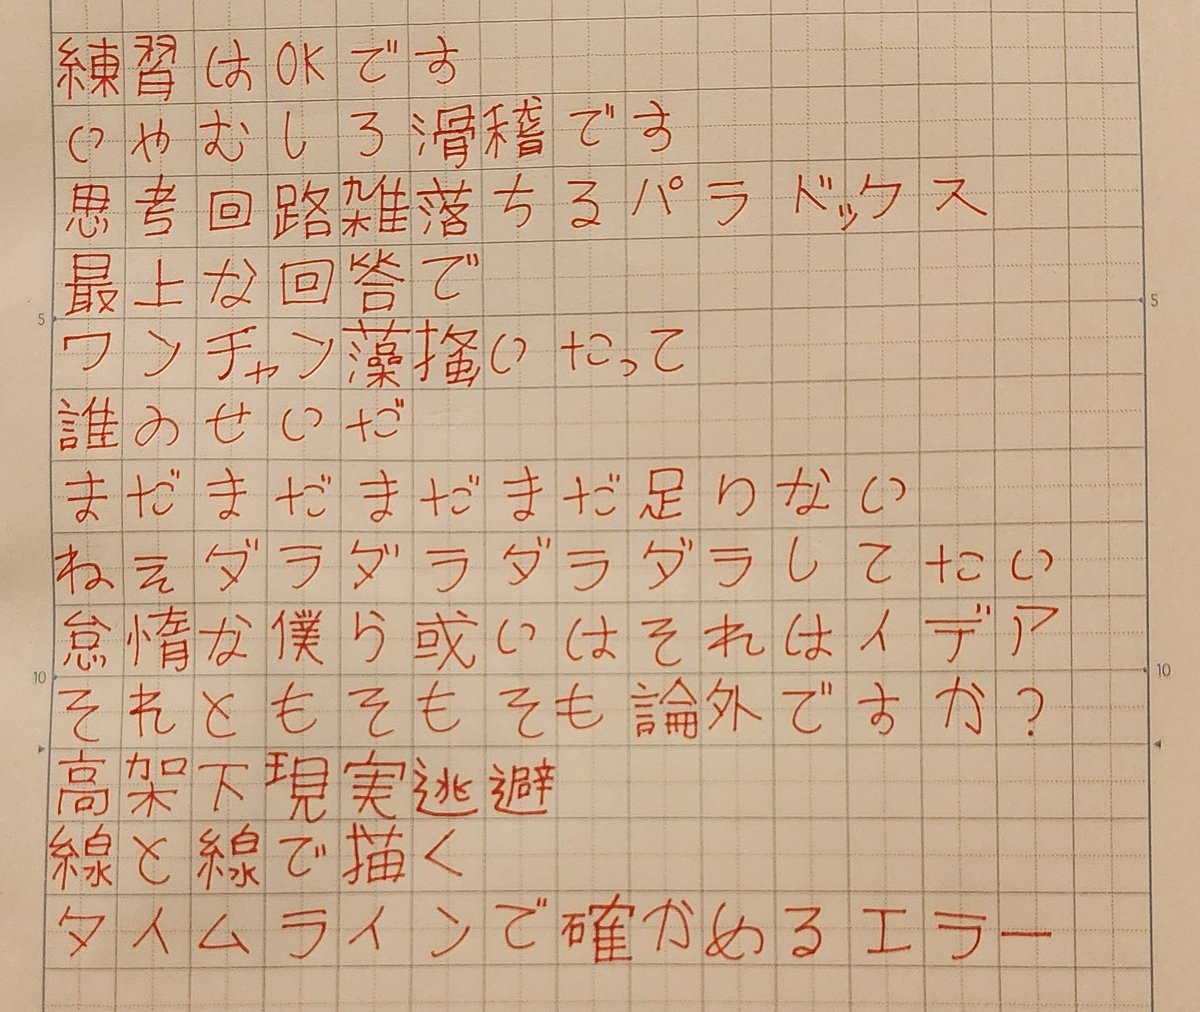 練習はOKです
いやむしろ滑稽です
思考回路雑落ちるパラドックス
最上な回答で
ワンチャン藻掻いたって
誰のせいだ
まだまだまだまだ足りない
ねえダラダラダラダラしてたい
怠惰な僕ら或いはそれはイデア
それともそもそも論外ですか?
高架下現実逃避
線と線で描く
タイムラインで確かめるエラー
5
5
10
10